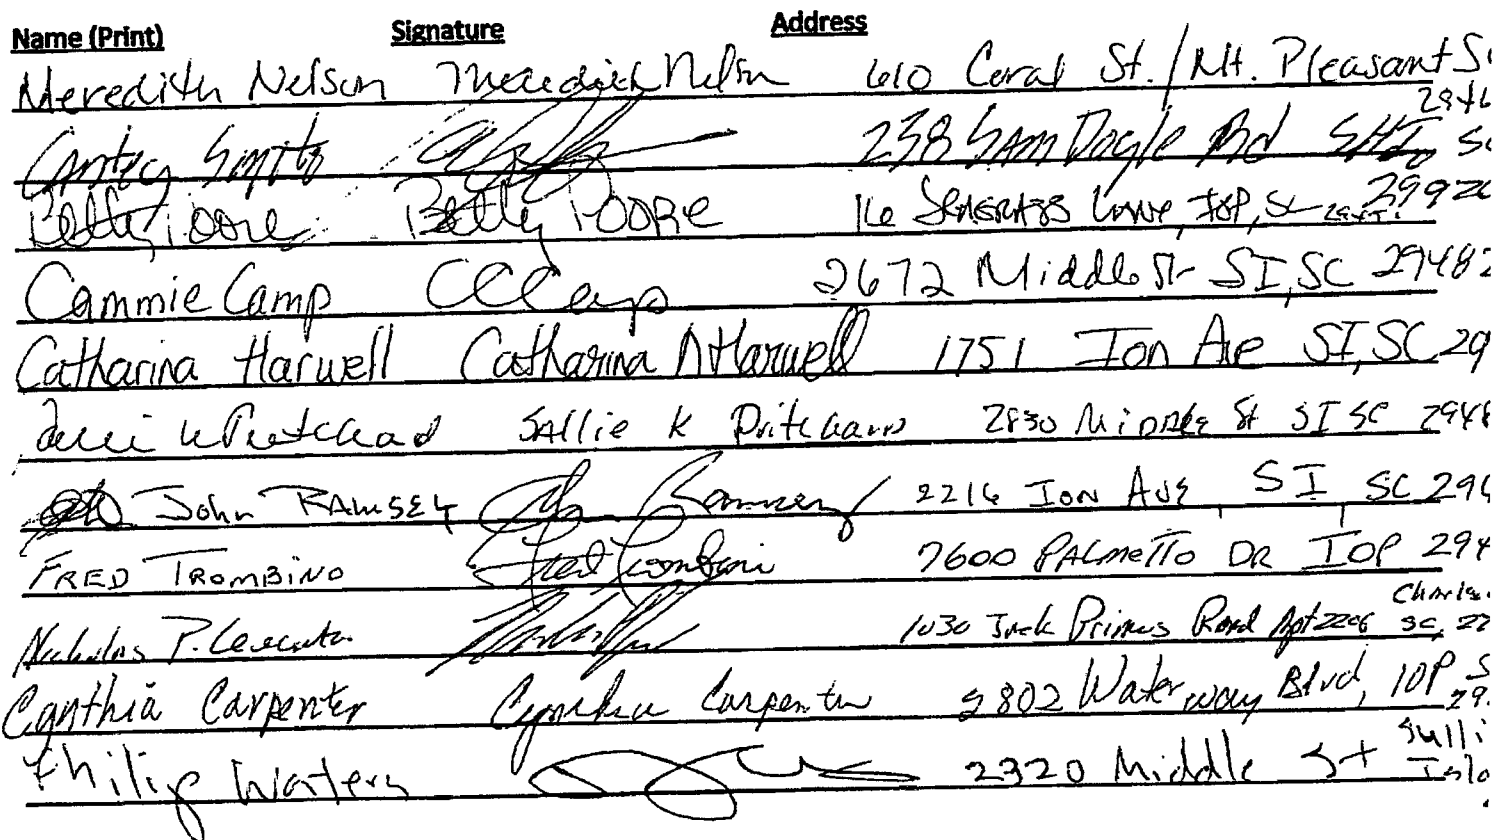 Name (Print) Signature Address
Meredith Nelson Meredith Nelson 610 Coral St. / Mt. Pleasant S
294
Smith 238 Sam Doyle Rd SHI, S
2992
Betty Poore Betty Poore 16 Seagrass Lane, IOP, SC
Cammie Camp CCCamp 2672 Middle St SI, SC 29482
Catharina Harwell Catharina N Harwell 1751 Ion Ave SI, SC 29
Sallie K Pritchard 2830 Middle St SI SC 2948
John RAMSEY John Ramsey 2216 ION AVE, SI, SC 294
FRED TROMBINO Fred Trombino 7600 PALMETTO DR IOP 294
Charles
Nicholas P. 1030 Jack Primus Road Apt 2206 SC, 29
Cynthia Carpenter Cynthia Carpenter 2802 Waterway Blvd, IOP S
29
Philip Waters 2320 Middle St Sulli
Isla